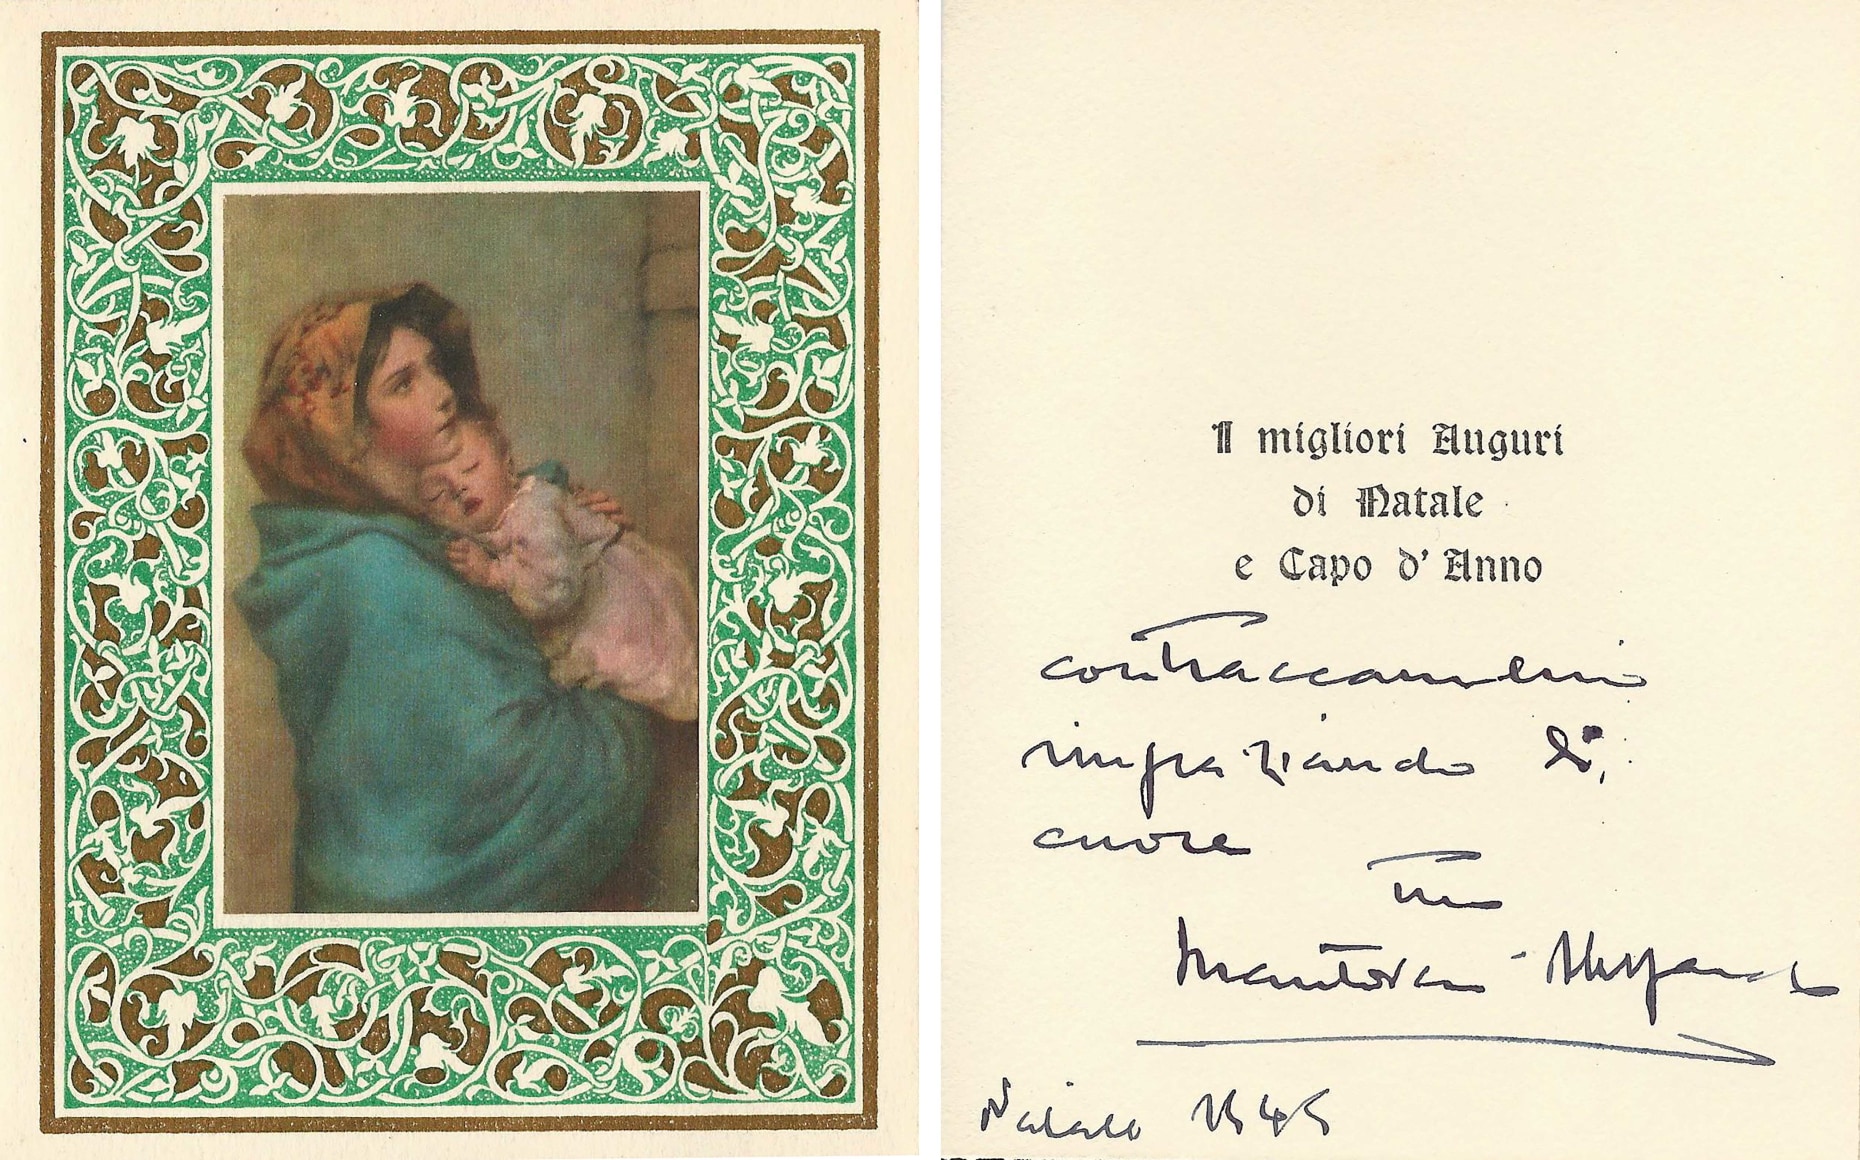 I migliori Auguri
di Natale
e Capo d'Anno
contraccambio
ringraziando di
cuore
Mantovani
Natale